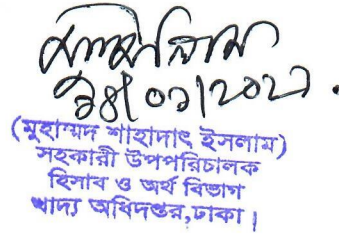 (মুহাম্মদ শাহাদাৎ ইসলাম)
সহকারী উপপরিচালক
হিসাব ও অর্থ বিভাগ
খাদ্য অধিদপ্তর,ঢাকা।